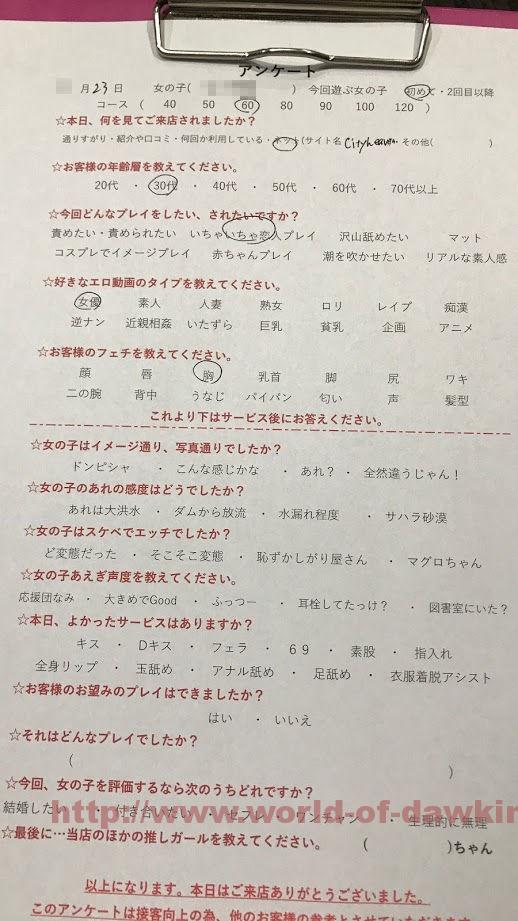 アンケート
月23日 女の子( ) 今回遊ぶ女の子 初めて・2回目以降
コース ( 40 50 60 80 90 100 120 )
☆本日、何を見てご来店されましたか?
通りすがり・紹介や口コミ・何回か利用している・ネット(サイト名 その他( )
☆お客様の年齢層を教えてください。
20代 ・ 30代 ・ 40代 ・ 50代 ・ 60代 ・ 70代以上
☆今回どんなプレイをしたい、されたいですか?
責めたい・責められたい いちゃいちゃ恋人プレイ 沢山舐めたい マット
コスプレでイメージプレイ 赤ちゃんプレイ 潮を吹かせたい リアルな素人感
☆好きなエロ動画のタイプを教えてください。
女優 素人 人妻 熟女 ロリ レイプ 痴漢
逆ナン 近親相姦 いたずら 巨乳 貧乳 企画 アニメ
☆お客様のフェチを教えてください。
顔 唇 胸 乳首 脚 尻 ワキ
二の腕 背中 うなじ パイパン 匂い 声 髪型
これより下はサービス後にお答えください。
☆女の子はイメージ通り、写真通りでしたか?
ドンピシャ ・ こんな感じかな ・ あれ? ・ 全然違うじゃん!
☆女の子のあれの感度はどうでしたか?
あれは大洪水 ・ ダムから放流 ・ 水漏れ程度 ・ サハラ砂漠
☆女の子はスケベでエッチでしたか?
ど変態だった ・ そこそこ変態 ・ 恥ずかしがり屋さん ・ マグロちゃん
☆女の子あえぎ声度を教えてください。
応援団なみ ・ 大きめでGood ・ ふっつー ・ 耳栓してたっけ? ・ 図書室にいた?
☆本日、よかったサービスはありますか?
キス ・ Dキス ・ フェラ ・ 69 ・ 素股 ・ 指入れ
全身リップ ・ 玉舐め ・ アナル舐め ・ 足舐め ・ 衣服着脱アシスト
☆お客様のお望みのプレイはできましたか?
はい ・ いいえ
☆それはどんなプレイでしたか?
( )
☆今回、女の子を評価するなら次のうちどれですか?
結婚したい ・ 付き合いたい ・ セフレ ・ ワンチャン ・ 生理的に無理
http://www.world-of-dawkin
☆最後に…当店のほかの推しガールを教えてください。 ( )ちゃん
以上になります。本日はご来店ありがとうございました。
このアンケートは接客向上の為、他のお客様の参考とさせていただきます